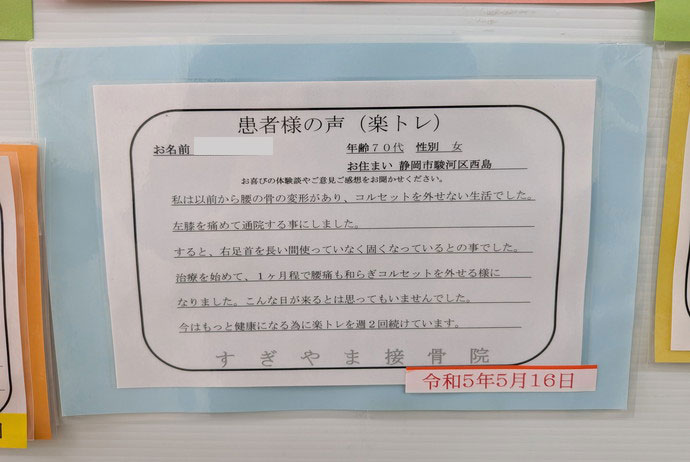 患者様の声（楽トレ）
お名前 年齢７０代 性別 女
お住まい 静岡市駿河区西島
お喜びの体験談やご意見ご感想をお聞かせください。
私は以前から腰の骨の変形があり、コルセットを外せない生活でした。
左膝を痛めて通院する事にしました。
すると、右足首を長い間使っていなく固くなっているとの事でした。
治療を始めて、１ヶ月程で腰痛も和らぎコルセットを外せる様に
なりました。こんな日が来るとは思ってもいませんでした。
今はもっと健康になる為に楽トレを週２回続けています。
すぎやま接骨院
令和5年5月16日